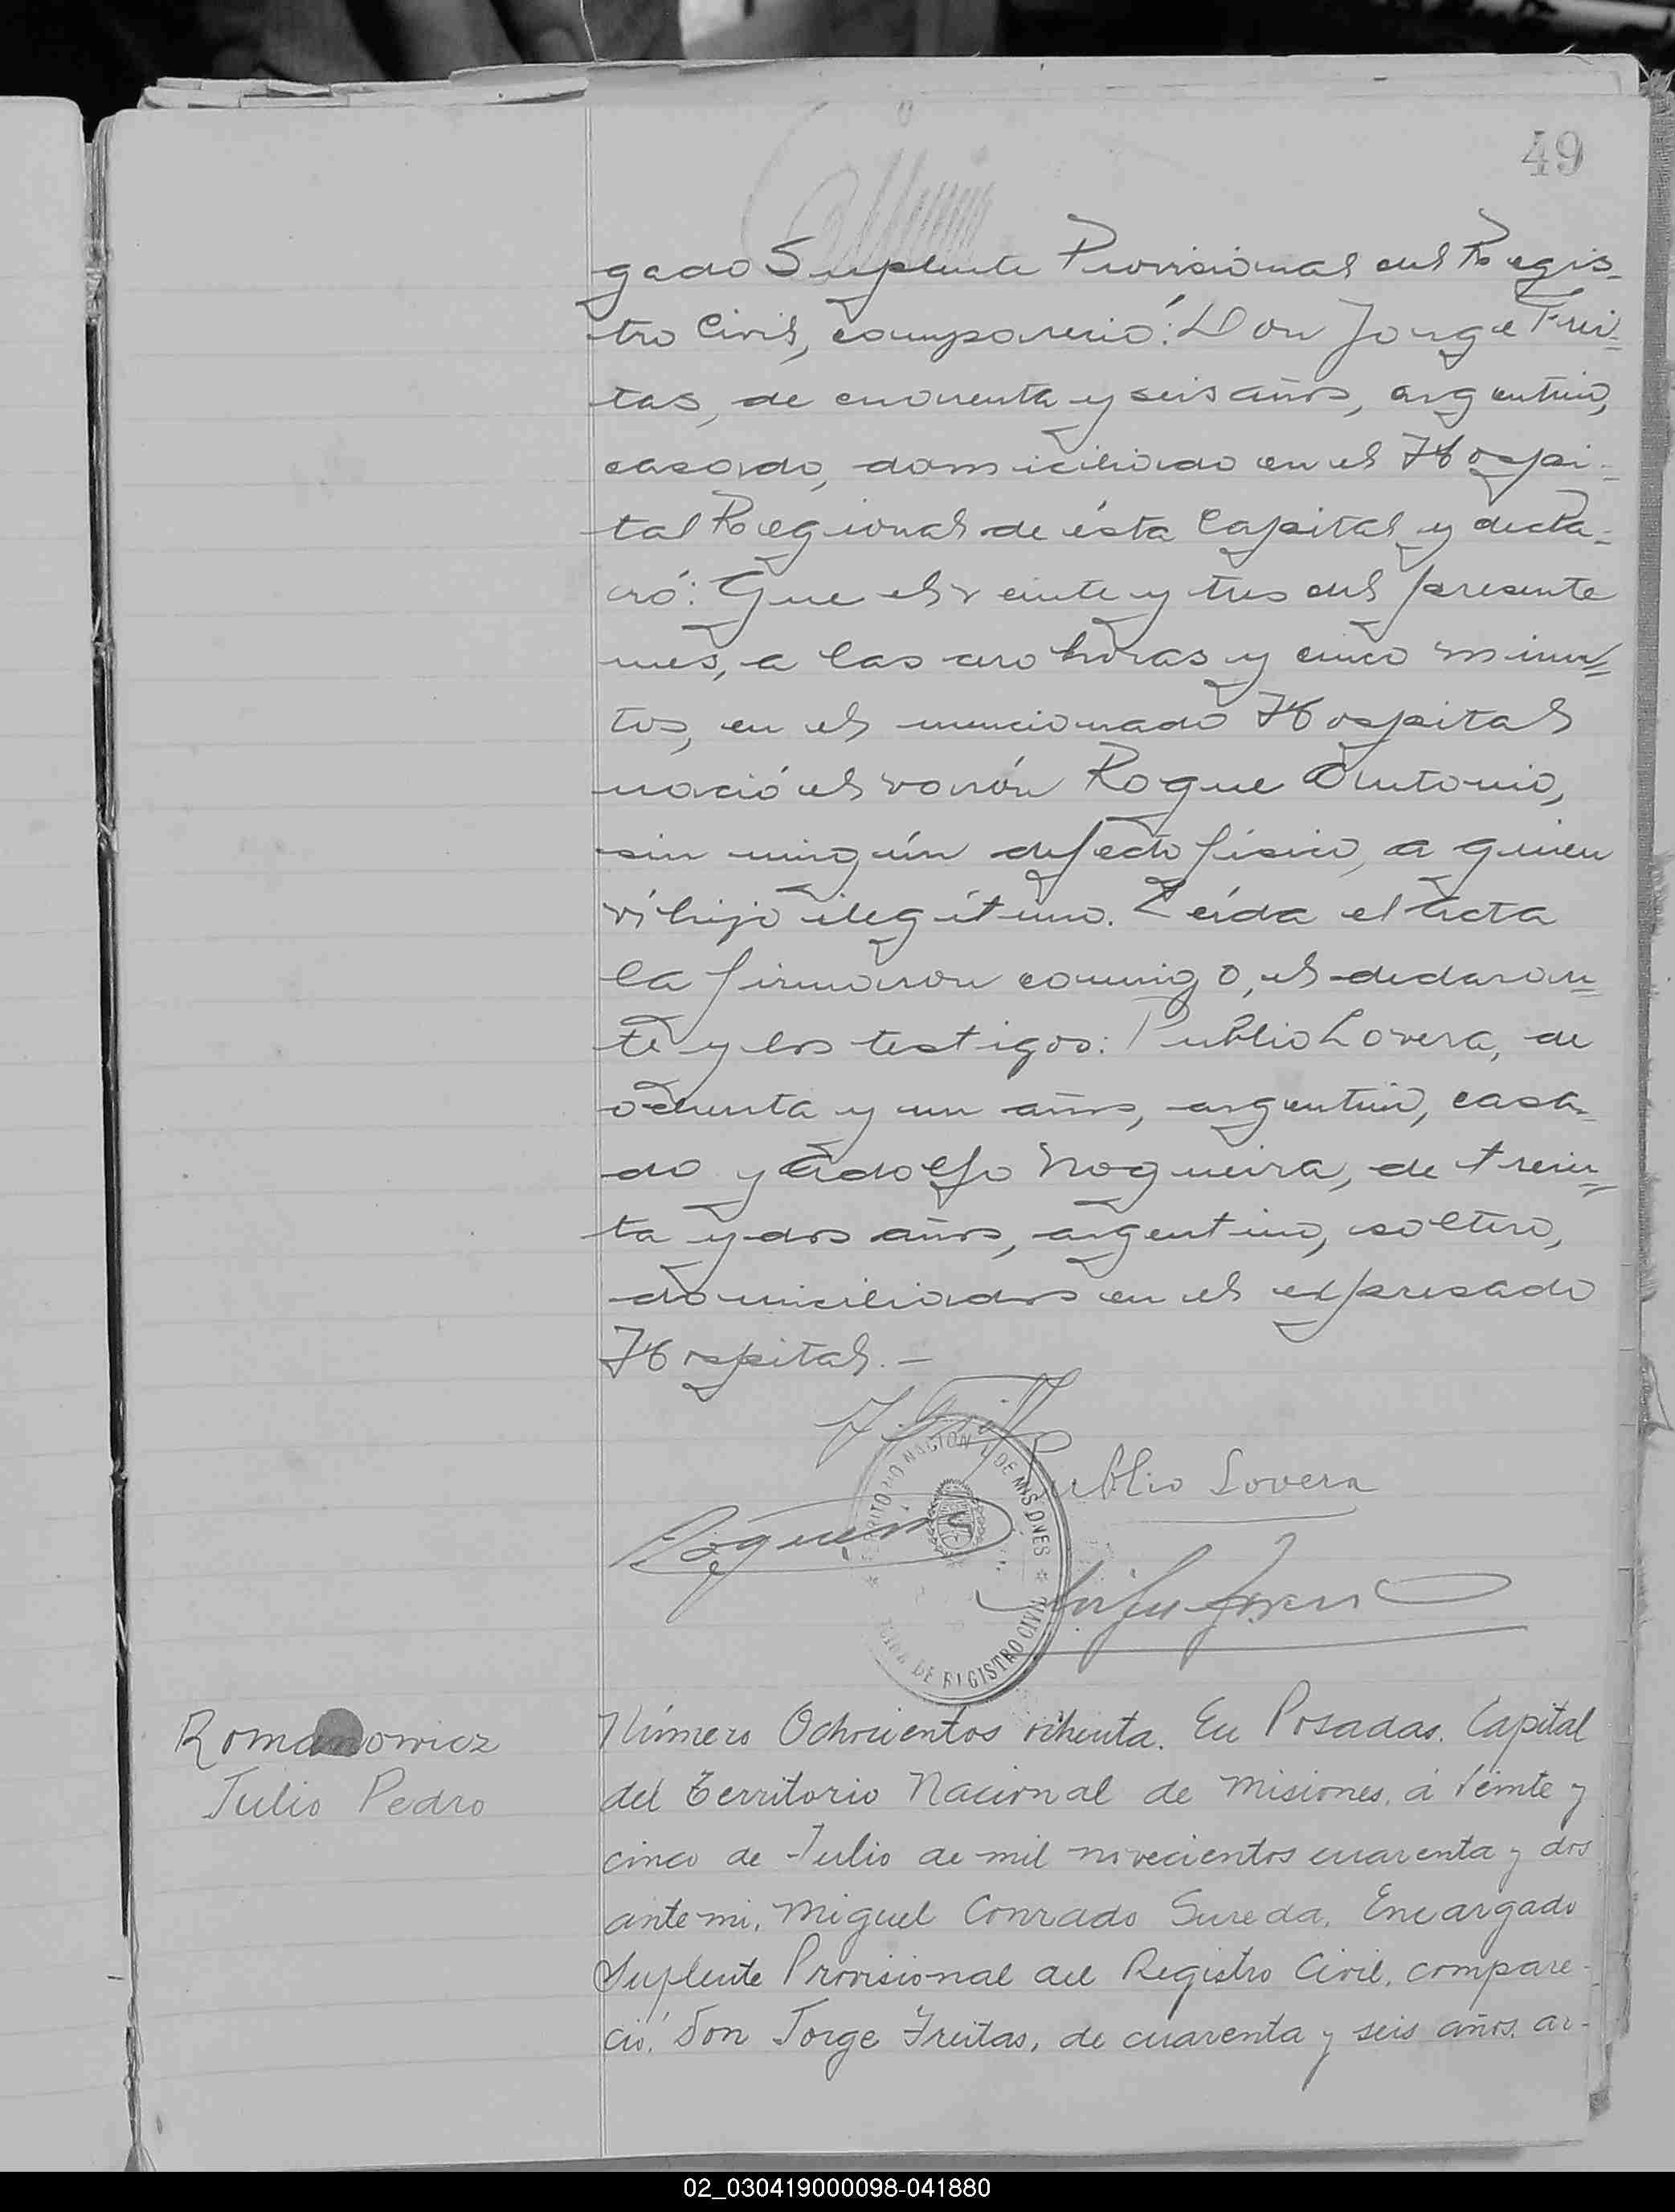 49
gado Suplente Provisional del Regis-
tro Civil, compareció: Don Jorge Frei-
tas, de cuarenta y seis años, argentino,
casado, domiciliado en el Hospi-
tal Regional de ésta Capital y decla-
ró: Que el veinte y tres del presente
mes, a las cero horas y cinco minu-
tos, en el mencionado Hospital
nació el varón Roque Antonio,
sin ningún defecto físico, a quien
ví hijo ilegítimo. Leída el acta
la firmaron conmigo, el declaran-
te y los testigos: Publio Lovera, de
ochenta y un años, argentino, casa-
do y Adolfo Nogueira, de trein-
ta y dos años, argentino, soltero,
domiciliados en el expresado
Hospital.—
Publio Lovera
TERRITORIO NACIONAL DE MISIONES
OFICINA DE REGISTRO CIVIL
Romanowicz
Julio Pedro
Número Ochocientos ochenta. En Posadas. Capital
del Territorio Nacional de Misiones. á Veinte y
cinco de Julio de mil novecientos cuarenta y dos
ante mi, Miguel Conrado Sureda, Encargado
Suplente Provisional del Registro Civil, compare-
ció: Don Jorge Freitas, de cuarenta y seis años. ar-
02_030419000098-041880